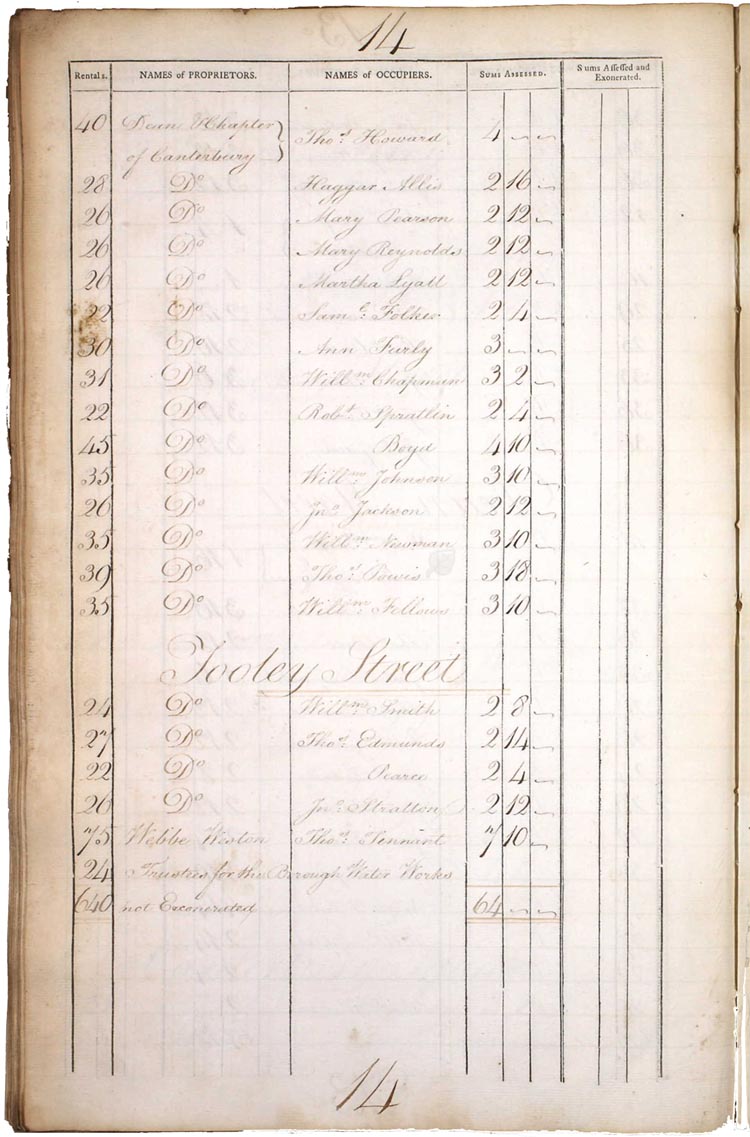 14
Rentals. NAMES of PROPRIETORS. NAMES of OCCUPIERS. SUMS ASSESSED. Sums Assessed and Exonerated.
40 Dean & Chapter of Canterbury } Thos. Howard 4 " "
28 Do Haggar Allis 2 16 "
26 Do Mary Pearson 2 12 "
26 Do Mary Reynolds 2 12 "
26 Do Martha Lyall 2 12 "
22 Do Saml. Folkes 2 4 "
30 Do Ann Furly 3 " "
31 Do Willm. Chapman 3 2 "
22 Do Robt. Sprallin 2 4 "
45 Do Boyd 4 10 "
35 Do Willm. Johnson 3 10 "
26 Do Jno. Jackson 2 12 "
35 Do Willm. Newman 3 10 "
39 Do Thos. Powis 3 18 "
35 Do Willm. Fellows 3 10 "
Tooley Street
24 Do Willm. Smith 2 8 "
27 Do Thos. Edmunds 2 14 "
22 Do Pearce 2 4 "
26 Do Jno. Stratton 2 12 "
75 Webbe Weston Thos. Tennant 7 10 "
24 Trustees for the Borough Water Works
640 not Exonerated 64 " "
14